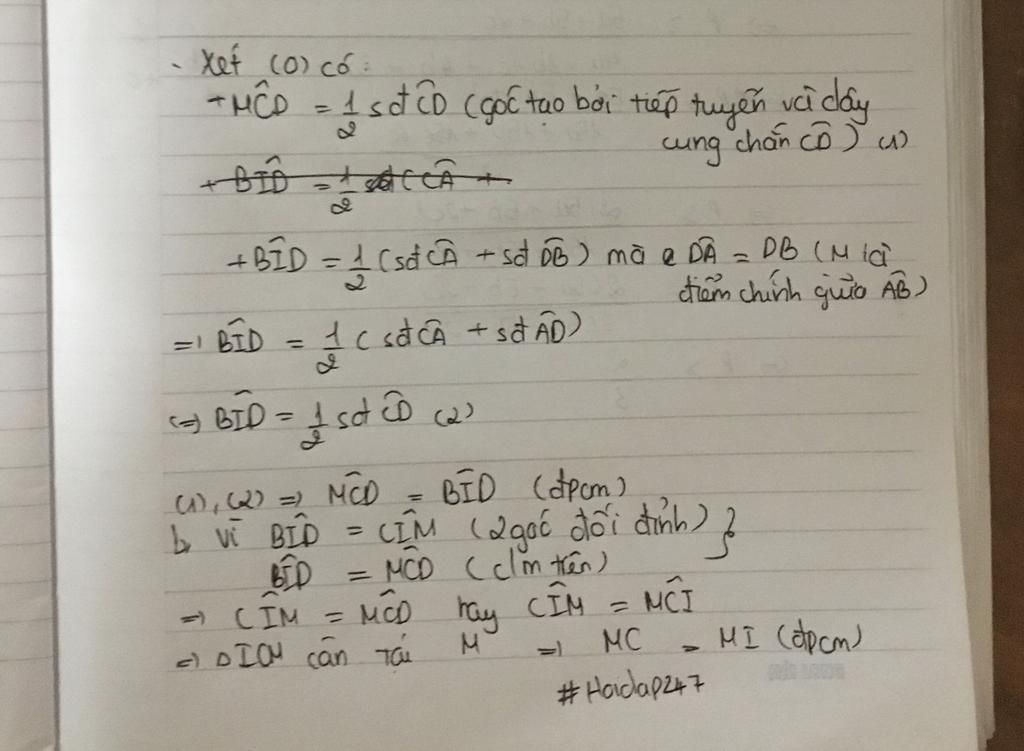 - Xét (O) có:
+ MĈD = 1/2 sđ CD̂ (góc tạo bởi tiếp tuyến và dây
cung chắn CD̂) (1)
+ BÎD = 1/2 sđ (CÂ +
+ BÎD = 1/2 (sđ CÂ + sđ DB̂) mà DÂ = DB (M là
điểm chính giữa AB̂)
=> BÎD = 1/2 (sđ CÂ + sđ AD̂)
(=) BÎD = 1/2 sđ CD̂ (2)
(1), (2) => MĈD = BÎD (đpcm)
b, vì BÎD = CÎM (2 góc đối đỉnh) }
BÎD = MĈD (c/m trên)
=> CÎM = MĈD hay CÎM = MĈI
=> ΔICM cân tại M => MC = MI (đpcm)
#Hoidap247